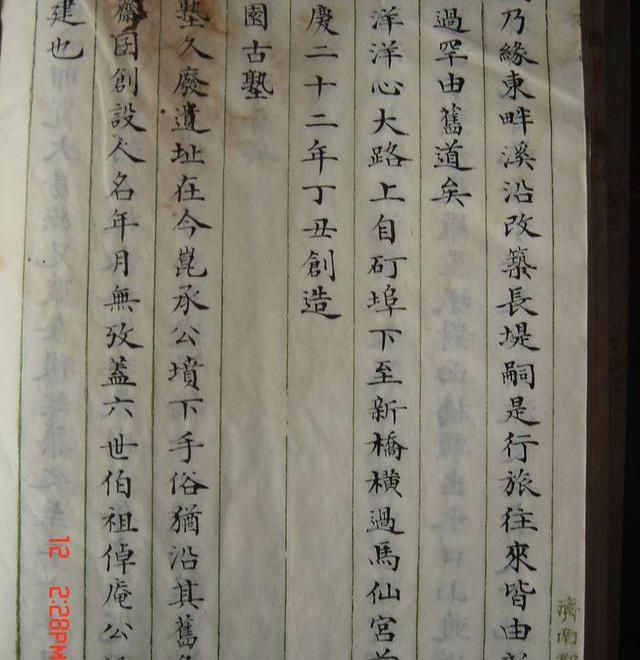 乃緣東畔溪沿改築長堤嗣是行旅往來皆由新
過罕由舊道矣
洋洋心大路上自矴埠下至新橋橫過馬仙宮前
慶二十二年丁丑創造
園古塾
塾久廢遺址在今崑承公墳下手俗猶沿其舊
齋囝創設人名年月無攷蓋六世伯祖倬庵公
建也
濟南
12 2:28PM